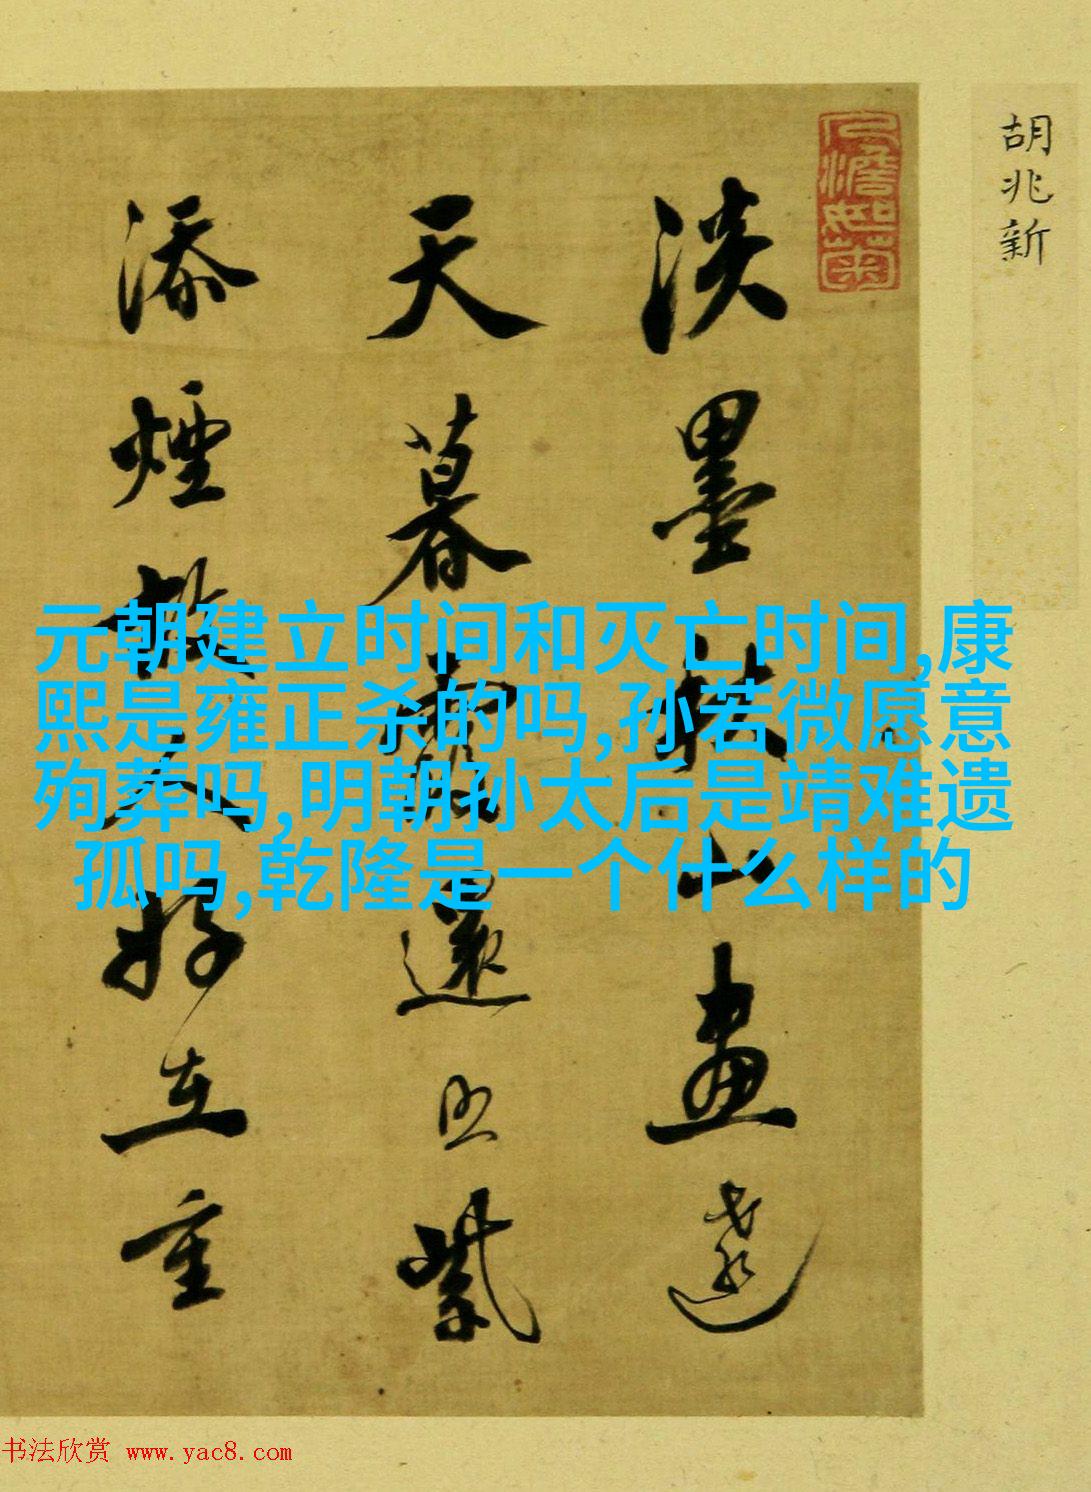 胡兆新
人澹如菊
淡墨秋山畫遠
天暮霞還照紫
添煙故人好在重
元朝建立时间和灭亡时间,康
熙是雍正杀的吗,孙若微愿意
殉葬吗,明朝孙太后是靖难遗
孤吗,乾隆是一个什么样的
书法欣赏 www.yac8.com